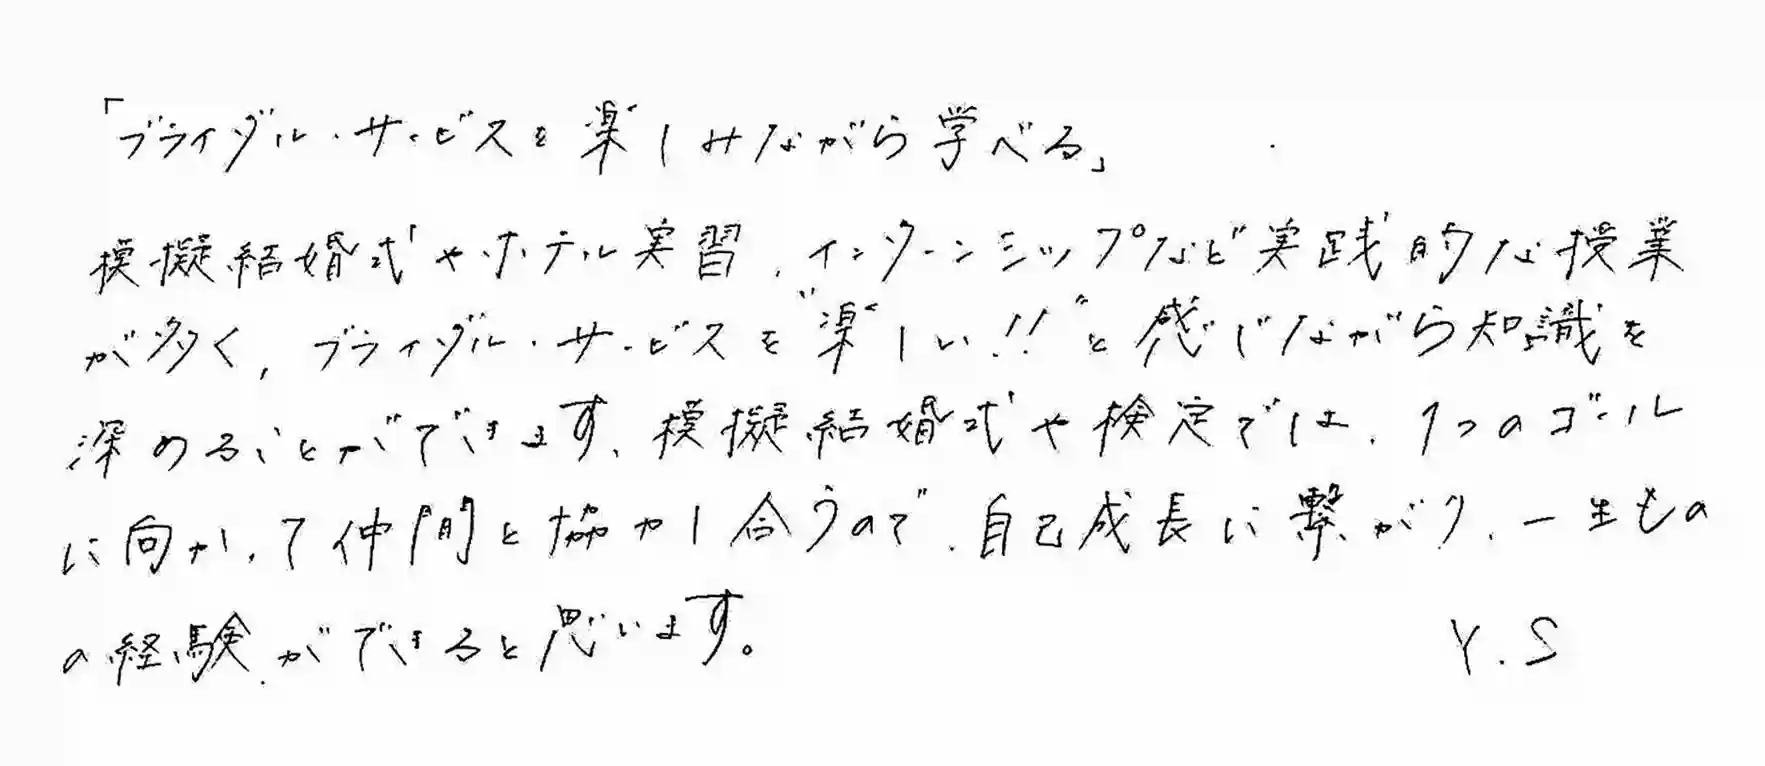 「ブライダル・サービスを楽しみながら学べる」
模擬結婚式やホテル実習、インターンシップなど実践的な授業
が多く、ブライダル・サービスを“楽しい!!”と感じながら知識を
深めることができます。模擬結婚式や検定では、1つのゴール
に向かって仲間と協力し合うので、自己成長に繋がり、一生もの
の経験ができると思います。
Y.S